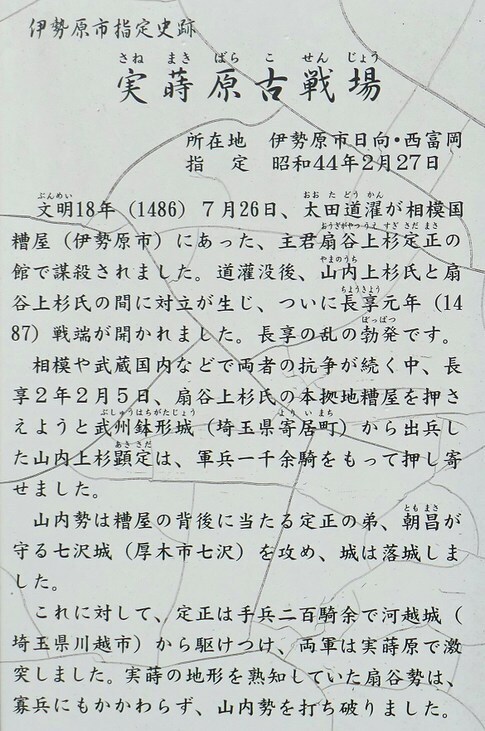 伊勢原市指定史跡
さね まき ばら こ せん じょう
実蒔原古戦場
所在地 伊勢原市日向・西富岡
指定 昭和44年2月27日
ぶんめい おお た どう かん
文明18年(1486)7月26日、太田道灌が相模国
おうぎがやつうえ すぎ さだ まさ
糟屋(伊勢原市)にあった、主君扇谷上杉定正の
やまのうち
館で謀殺されました。道灌没後、山内上杉氏と扇
ちょうきょう
谷上杉氏の間に対立が生じ、ついに長享元年(14
ぼっぱつ
87)戦端が開かれました。長享の乱の勃発です。
相模や武蔵国内などで両者の抗争が続く中、長
享2年2月5日、扇谷上杉氏の本拠地糟屋を押さ
ぶしゅうはちがたじょう より い まち
えようと武州鉢形城(埼玉県寄居町)から出兵し
あき さだ
た山内上杉顕定は、軍兵一千余騎をもって押し寄
せました。
とも まさ
山内勢は糟屋の背後に当たる定正の弟、朝昌が
守る七沢城(厚木市七沢)を攻め、城は落城しま
した。
これに対して、定正は手兵二百騎余で河越城(
埼玉県川越市)から駆けつけ、両軍は実蒔原で激
突しました。実蒔の地形を熟知していた扇谷勢は、
寡兵にもかかわらず、山内勢を打ち破りました。